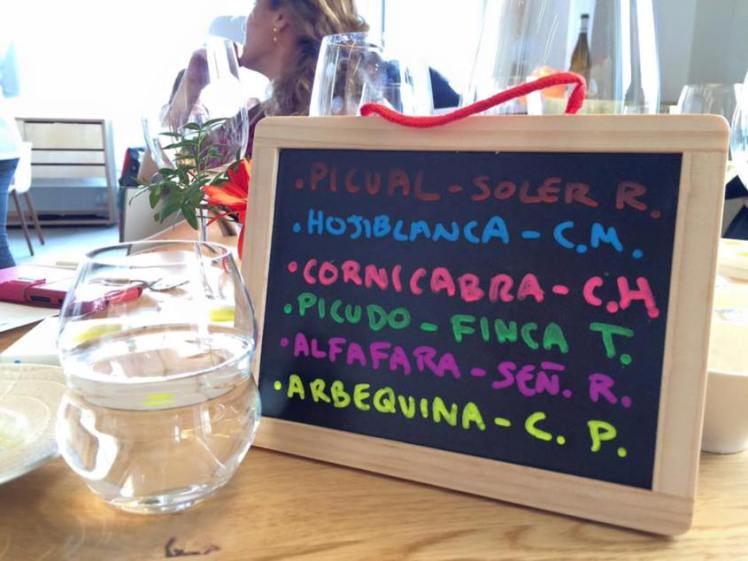 .PICUAL-SOLER R.
.HOJIBLANCA-C.M.
.CORNICABRA-C.H
.PICUDO-FINCA T.
.ALFAFARA-SEÑ. R.
.ARBEQUINA-C. P.